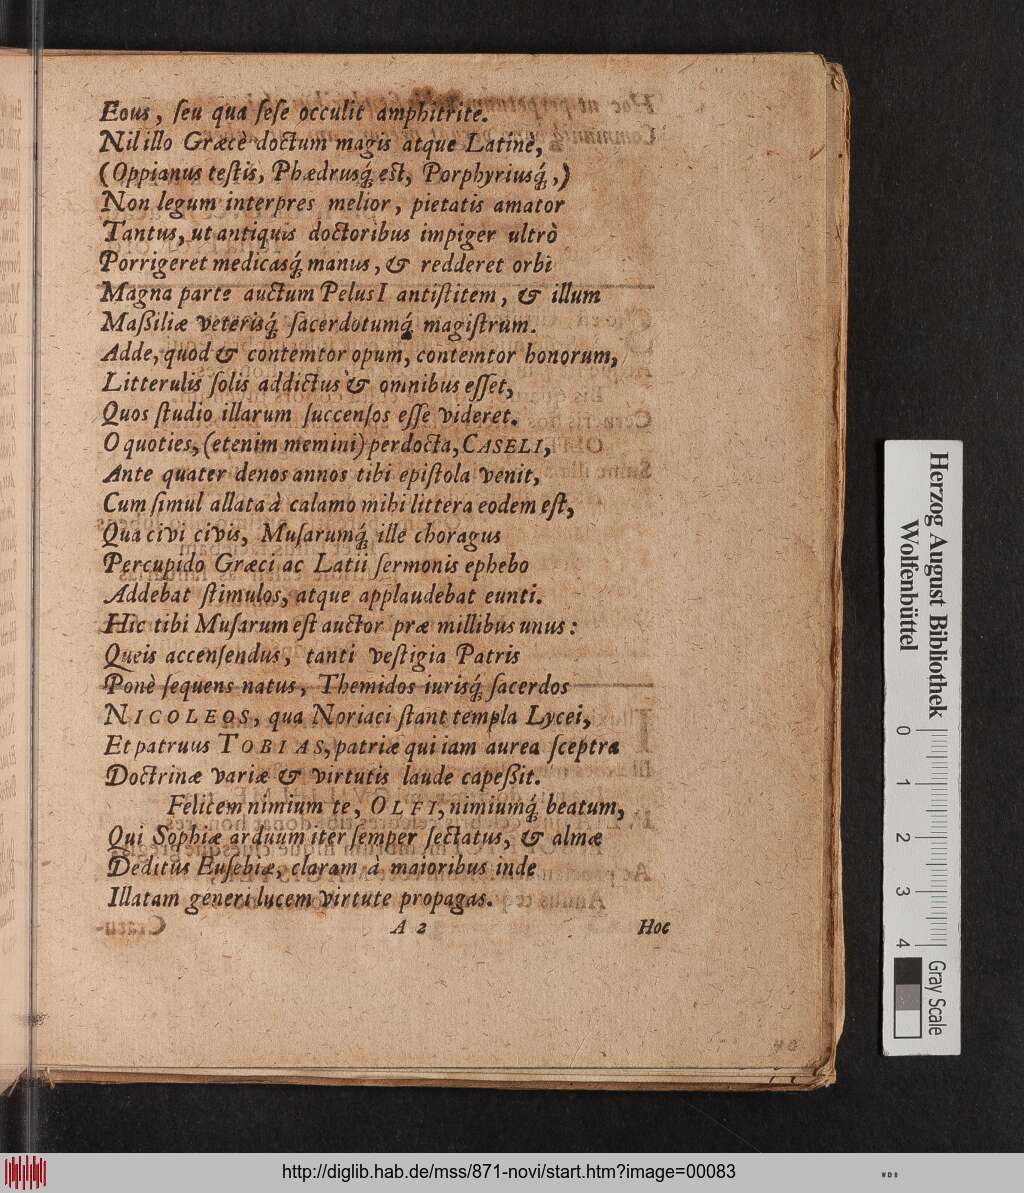 Eous, ſeu qua ſeſe occulit amphitrite.
Nil illo Græcè doctum magis atque Latinè,
(Oppianus teſtis, Phædrusq́; est, Porphyriusq́;,)
Non legum interpres melior, pietatis amator
Tantus, ut antiquis doctoribus impiger ultrò
Porrigeret medicasq́; manus, & redderet orbi
Magna parte auctum PelusI antiſtitem, & illum
Maßiliæ veterisq́; ſacerdotumq́; magiſtrum.
Adde, quod & contemtor opum, contemtor honorum,
Litterulis ſolis addictus & omnibus eſſet,
Quos ſtudio illarum ſuccenſos eſſe videret.
O quoties, (etenim memini) perdocta, CASELI,
Ante quater denos annos tibi epiſtola venit,
Cum ſimul allata à calamo mihi littera eodem eſt,
Qua civi civis, Muſarumq́; ille choragus
Percupido Græci ac Latii ſermonis ephebo
Addebat ſtimulos, atque applaudebat eunti.
Hic tibi Muſarum eſt auctor præ millibus unus:
Queis accenſendus, tanti veſtigia Patris
Ponè ſequens natus, Themidos iurisq́; ſacerdos
NICOLEOS, qua Noriaci ſtant templa Lycei,
Et patruus TOBIAS, patriæ qui iam aurea ſceptra
Doctrinæ variæ & virtutis laude capeßit.
Felicem nimium te, OLFI, nimiumq́; beatum,
Qui Sophiæ arduum iter ſemper ſectatus, & almæ
Deditus Euſebiæ, claram à maioribus inde
Illatam generi lucem virtute propagas.
A 2 Hoc
Herzog August Bibliothek
Wolfenbüttel
0 1 2 3 4
Gray Scale
http://diglib.hab.de/mss/871-novi/start.htm?image=00083